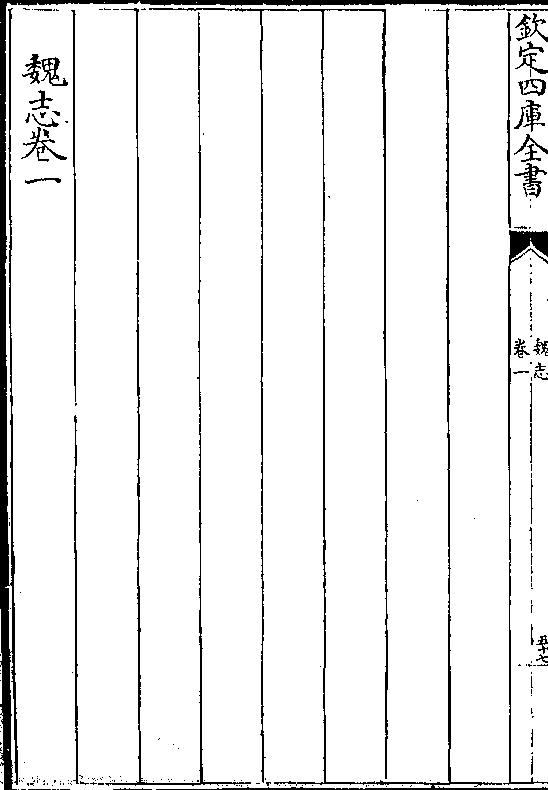 欽定四庫全書
魏志
卷一
五十七
魏志卷一